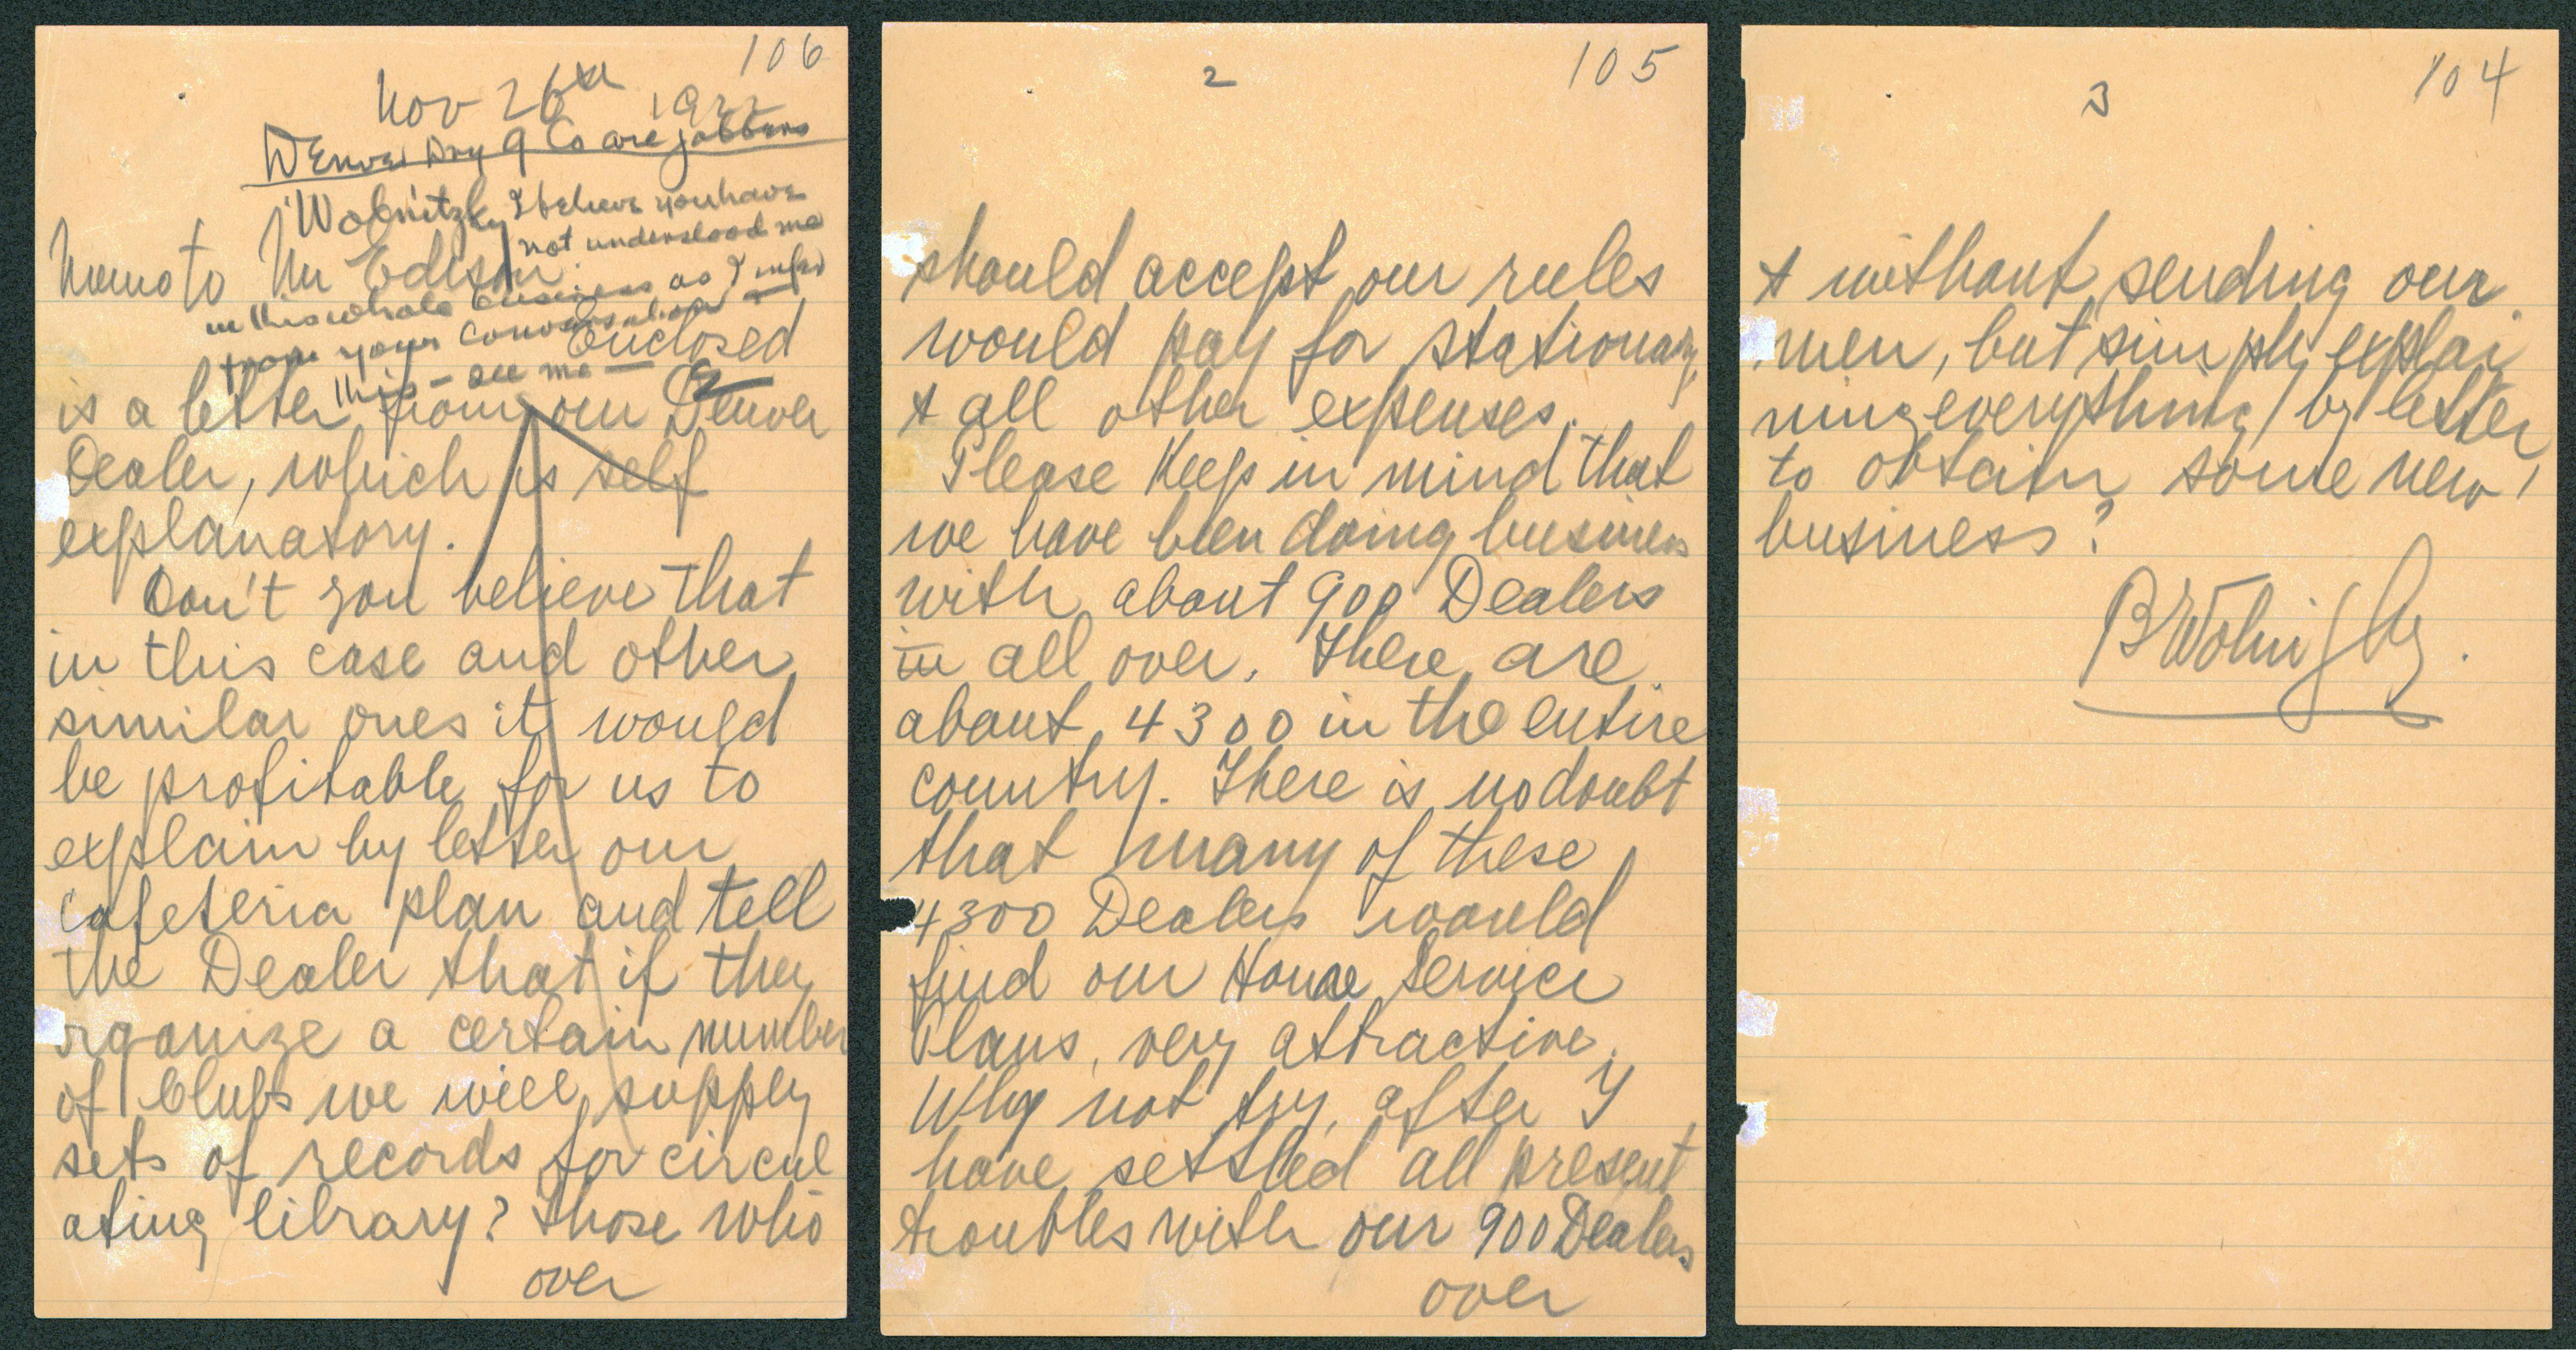 106
Nov 26th 1922
Denver Dry G Co are jobbers
Wolnitzky I believe you have
not understood me
Memo to Mr Edison.
in this whole business as I infer
from your conversation —
Enclosed
this — see me — E
is a letter from our Denver
Dealer, which is self
explanatory.
Don't you believe that
in this case and other
similar ones it would
be profitable for us to
explain by letter our
Cafeteria plan and tell
the Dealer that if they
organize a certain number
of Clubs we will supply
sets of records for circul
ating library? Those who
over
105
2
should accept our rules
would pay for stationary,
& all other expenses.
Please Keep in mind that
we have been doing business
with about 900 Dealers
in all over. There are
about 4300 in the entire
country. There is no doubt
that many of these
4300 Dealers would
find our House Service
Plans, very attractive.
Why not try, after I
have settled all present
troubles with our 900 Dealers
over
104
3
& without sending our
men, but simply explai
ning everything by letter
to obtain some new
business?
B Wolnitzky.